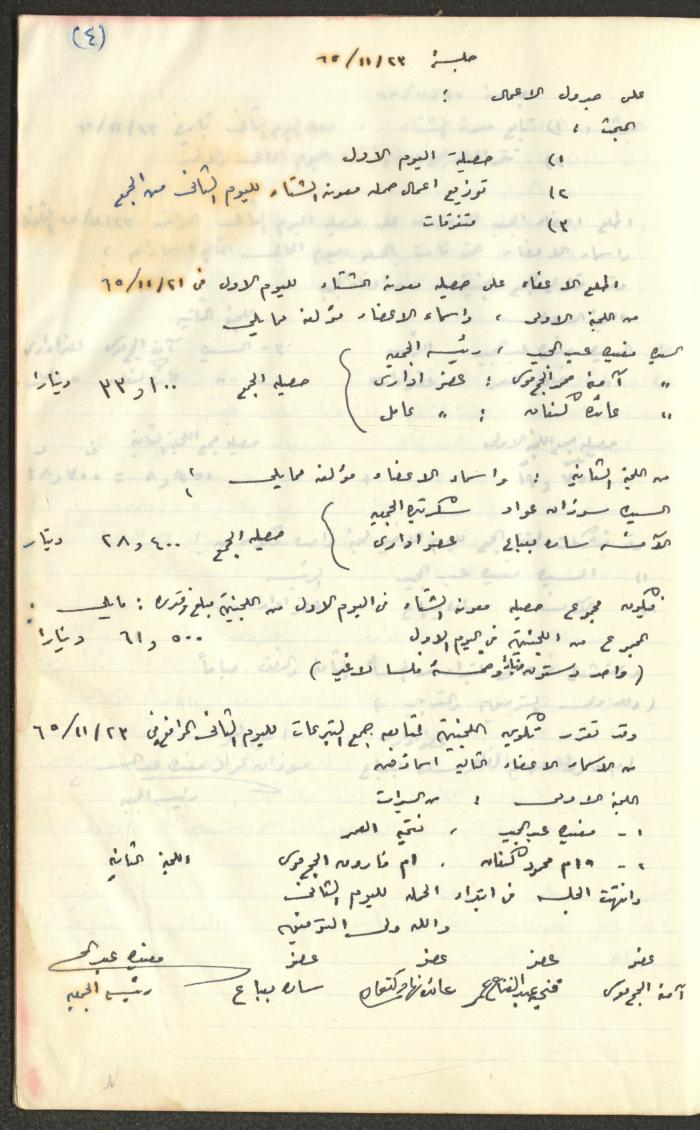 (٤)
جلسة ٦٥/١١/٢٣
على جدول الاعمال :
البحث :
١) حصيلة اليوم الاول
٢) توزيع اعمال حمله معونه الشتاء لليوم الثاني من الجمع
٣) متفرقات
اطلع الاعضاء على حصيله معونه الشتاء لليوم الاول في ٦٥/١١/٢١
من اللجنة الاولى ، واسماء الاعضاء مؤلفه مما يلي
السيده مفيده عبد المجيد ، رئيسه الجمعيه
" آمنة محمد الحج موسى : عضو اداري
حصيله الجمع ١٠٠ و ٣٣ دينارا
" عائده كنعان : " عامل
من اللجنة الثانيه : واسماء الاعضاء مؤلفه مما يلي :
السيده سوزان عواد سكرتيره الجمعيه
الآنسه ساره بيباعي عضو اداري
حصيله الجمع ٤٠٠ و ٢٨ دينار
فيكون مجموع حصيله معونه الشتاء في اليوم الاول من اللجنتين مبلغ وقدره : ما يلي :
المجموع من اللجنتين في اليوم الاول ٥٠٠ و ٦١ دينارا
(واحد وستون دينار وخمسة فلسا لا غير)
وقد تقرر تكوين اللجنتين لمتابعه جمع التبرعات لليوم الثاني الموافق في ٦٥/١١/٢٣
من الاعضاء التاليه اسماؤهم
اللجنة الاولى : من السيدات
١ - مفيده عبد المجيد ، فتحيه العمر
٢ - ام محمود كنعان . ام فاروق الحج موسى اللجنة الثانيه
وانتهت الجلسه في ابتداء الحمله لليوم الثاني
والله ولي التوفيق
عضو عضو عضو عضو مفيده عبد المجيد
آمنة الحج موسى فتحيه عبد الفتاح عمر عائده كنعان ساره بيباعي رئيسة الجمعيه